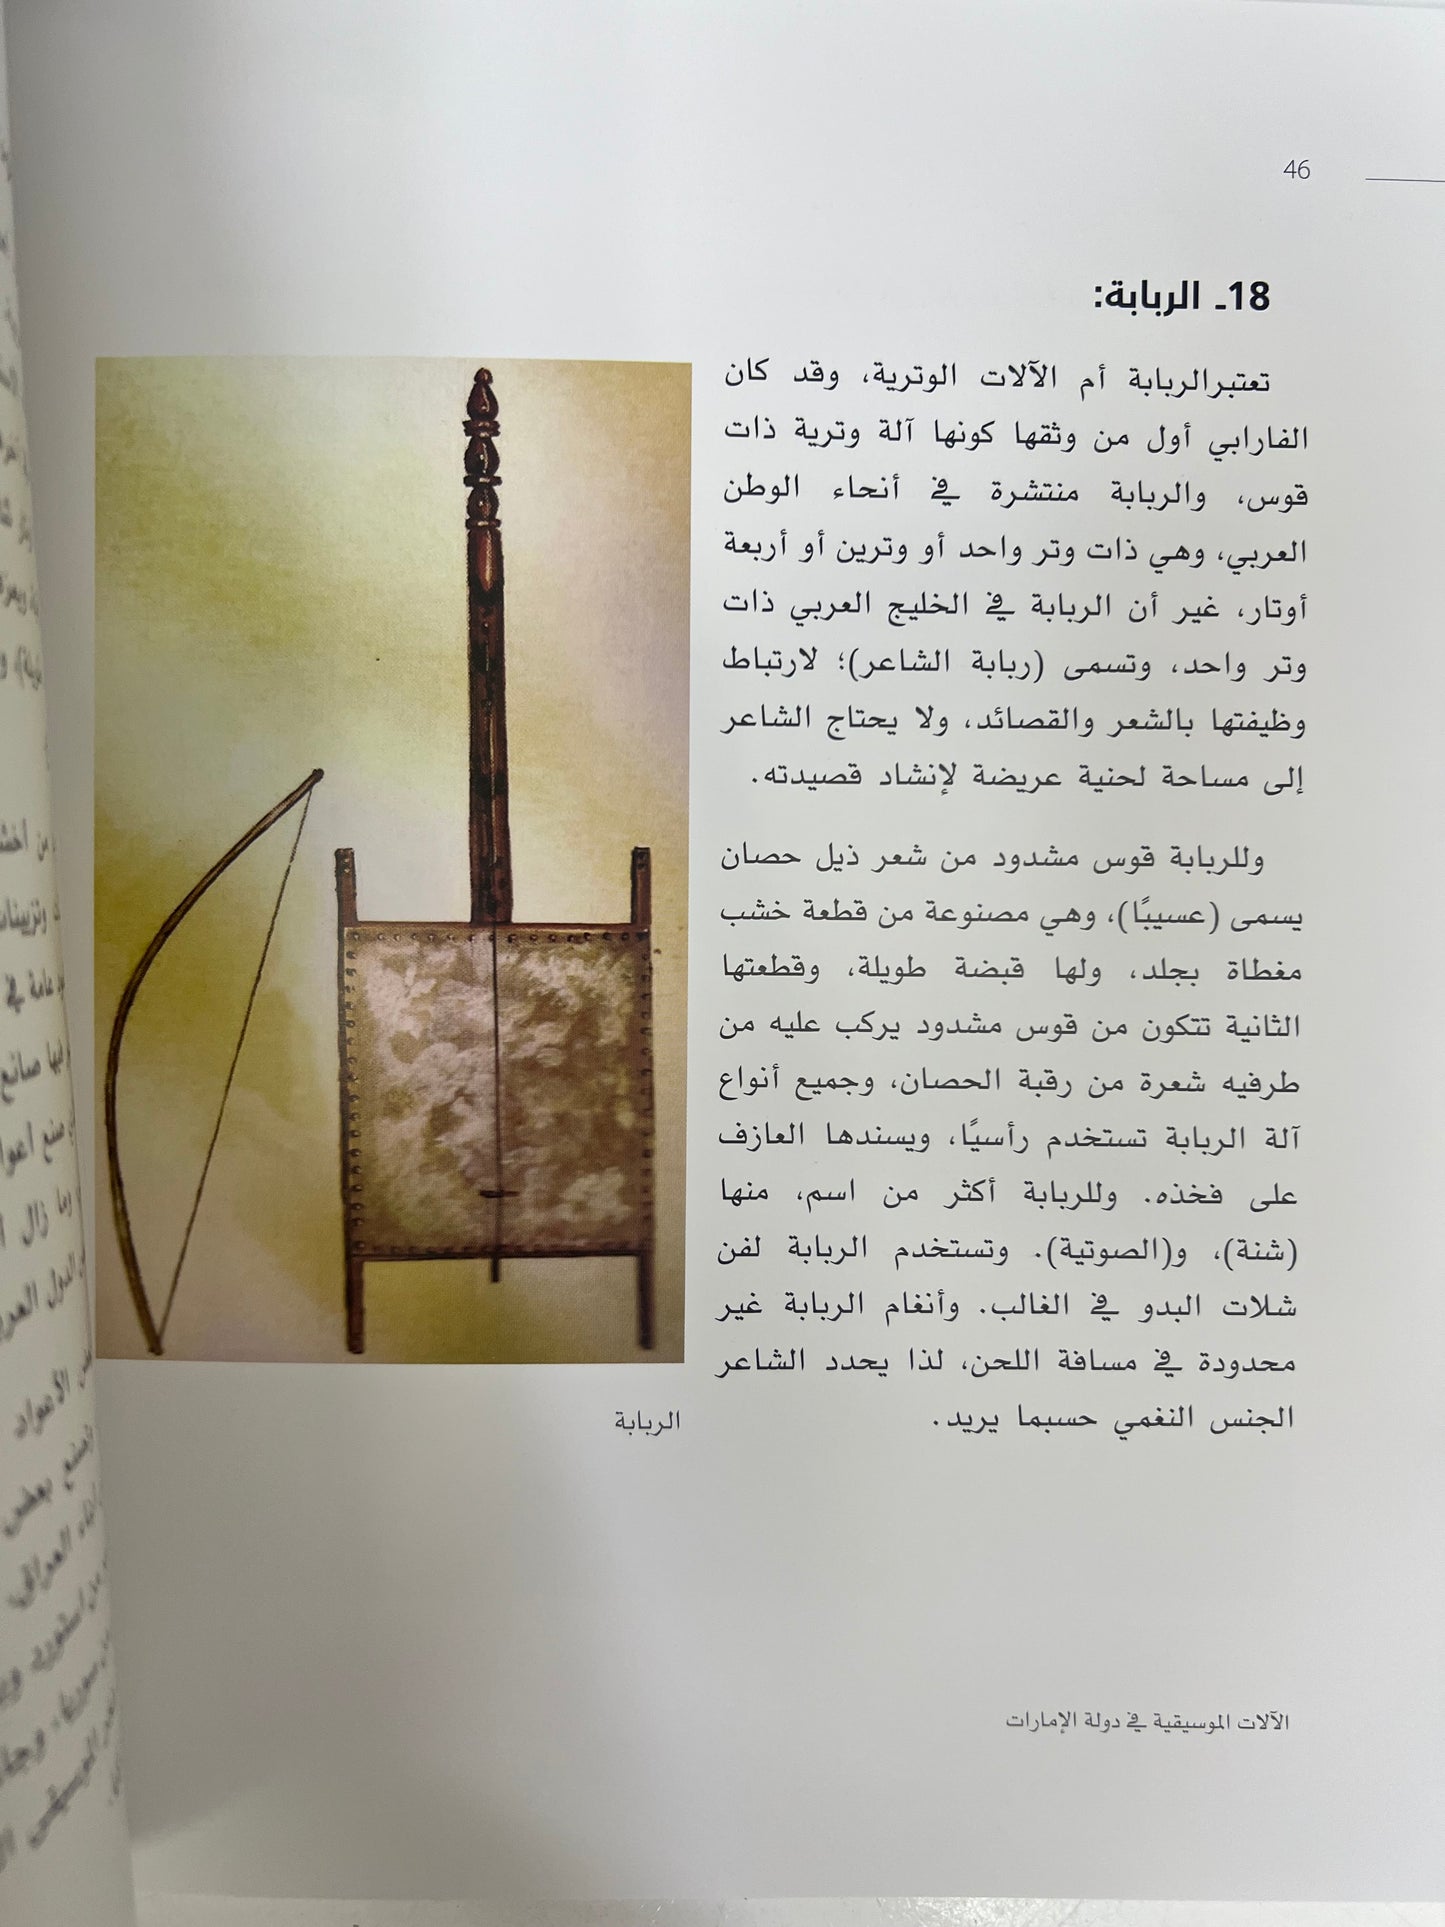 46
18ـ الربابة:
تعتبرالربابة أم الآلات الوترية، وقد كان
الفارابي أول من وثقها كونها آلة وترية ذات
قوس، والربابة منتشرة في أنحاء الوطن
العربي، وهي ذات وتر واحد أو وترين أو أربعة
أوتار، غير أن الربابة في الخليج العربي ذات
وتر واحد، وتسمى (ربابة الشاعر)؛ لارتباط
وظيفتها بالشعر والقصائد، ولا يحتاج الشاعر
إلى مساحة لحنية عريضة لإنشاد قصيدته.
وللربابة قوس مشدود من شعر ذيل حصان
يسمى (عسيبًا)، وهي مصنوعة من قطعة خشب
مغطاة بجلد، ولها قبضة طويلة، وقطعتها
الثانية تتكون من قوس مشدود يركب عليه من
طرفيه شعرة من رقبة الحصان، وجميع أنواع
آلة الربابة تستخدم رأسيًا، ويسندها العازف
على فخذه. وللربابة أكثر من اسم، منها
(شنة)، و(الصوتية). وتستخدم الربابة لفن
شلات البدو في الغالب. وأنغام الربابة غير
محدودة في مسافة اللحن، لذا يحدد الشاعر
الجنس النغمي حسبما يريد.
الربابة
الآلات الموسيقية في دولة الإمارات